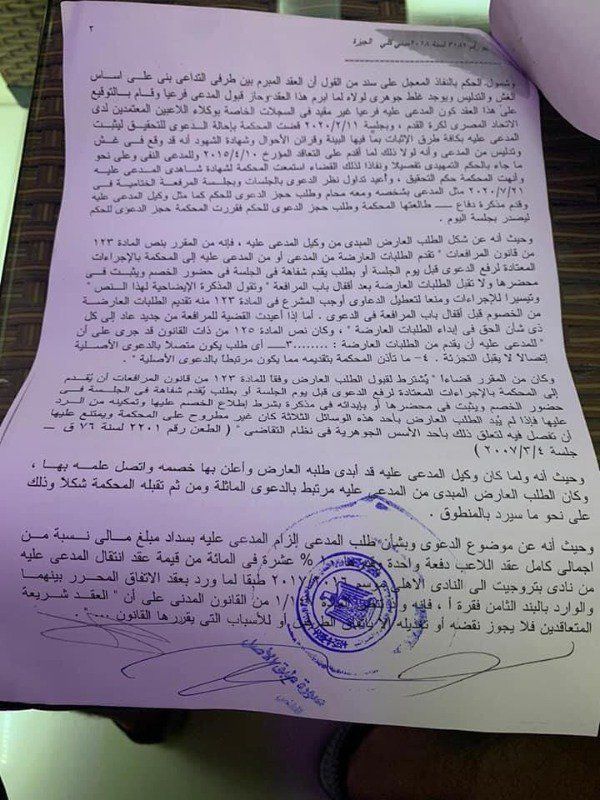 ٢
وشمول الحكم بالنفاذ المعجل على سند من القول أن العقد المبرم بين طرفي التداعى بنى على اساس
الغش والتدليس ويوجد غلط جوهرى لولاه لما ابرم هذا العقد وحاز قبول المدعى فرعيا وقام بالتوقيع
على هذا العقد كون المدعى عليه فرعيا غير مقيد فى السجلات الخاصة بوكلاء اللاعبين المعتمدين لدى
الاتحاد المصرى لكرة القدم ، وبجلسة ٢٠٢٠/٢/١١ قضت المحكمة بإحالة الدعوى للتحقيق ليثبت
المدعى عليه بكافة طرق الإثبات بما فيها البينة وقرائن الأحوال وشهادة الشهود أنه قد وقع فى غش
وتدليس من المدعى وأنه لولا ذلك لما أقدم على التعاقد المؤرخ ٢٠١٥/٤/١٠ وللمدعى النفى وعلى نحو
ما جاء بالحكم التمهيدى تفصيلا ونفاذا لذلك القضاء استمعت المحكمة لشهادة شاهدى المدعى عليه
وأنهت المحكمة حكم التحقيق ، وأعيد تداول نظر الدعوى بالجلسات وبجلسة المرفعة الختامية فى
٢٠٢٠/٧/٢١ مثل المدعى بشخصه ومعه محام وطلب حجز الدعوى للحكم كما مثل وكيل المدعى عليه
وقدم مذكرة دفاع طالعتها المحكمة وطلب حجز الدعوى للحكم فقررت المحكمة حجز الدعوى للحكم
ليصدر بجلسة اليوم .
وحيث أنه عن شكل الطلب العارض المبدى من وكيل المدعى عليه ، فإنه من المقرر بنص المادة ١٢٣
من قانون المرافعات " تقدم الطلبات العارضة من المدعى أو من المدعى عليه إلى المحكمة بالإجراءات
المعتادة لرفع الدعوى قبل يوم الجلسة أو بطلب يقدم شفاهة فى الجلسة فى حضور الخصم ويثبت فى
محضرها ولا تقبل الطلبات العارضة بعد أقفال باب المرافعة " وتقول المذكرة الإيضاحية لهذا النص "
وتيسيرا للإجراءات ومنعا لتعطيل الدعاوى أوجب المشرع فى المادة ١٢٣ منه تقديم الطلبات العارضة
من الخصوم قبل أقفال باب المرافعة فى الدعوى . أما إذا أعيدت القضية للمرافعة من جديد عاد إلى كل
ذى شأن الحق فى إبداء الطلبات العارضة " ، وكان نص المادة ١٢٥ من ذات القانون قد جرى على أن
" للمدعى عليه أن يقدم من الطلبات العارضة : ......... ٣- أى طلب يكون متصلاً بالدعوى الأصلية
إتصالا لا يقبل التجزئة . ٤- ما تأذن المحكمة بتقديمه مما يكون مرتبطاً بالدعوى الأصلية " .
وكان من المقرر قضاءاً " يُشترط لقبول الطلب العارض وفقا للمادة ١٢٣ من قانون المرافعات أن يُقدم
إلى المحكمة بالإجراءات المعتادة لرفع الدعوى قبل يوم الجلسة أو بطلب يقدم شفاهة فى الجلسة فى
حضور الخصم ويثبت فى محضرها أو بإبدائه فى مذكرة بشرط إطلاع الخصم عليها وتمكينه من الرد
عليها فإذا لم يُبد الطلب العارض بأحد هذه الوسائل الثلاثة كان غير مطروح على المحكمة ويمتنع عليها
أن تفصل فيه لتعلق ذلك بأحد الأسس الجوهرية فى نظام التقاضى " ( الطعن رقم ٢٢٠١ لسنة ٧٦ ق –
جلسة ٢٠٠٧/٣/٤ )
وحيث أنه ولما كان وكيل المدعى عليه قد أبدى طلبه العارض وأعلن بها خصمه واتصل علمه بها ،
وكان الطلب العارض المبدى من المدعى عليه مرتبط بالدعوى الماثلة ومن ثم تقبله المحكمة شكلاً وذلك
على نحو ما سيرد بالمنطوق .
وحيث أنه عن موضوع الدعوى وبشأن طلب المدعى إلزام المدعى عليه بسداد مبلغ مالى نسبة من
اجمالى كامل عقد اللاعب دفعة واحدة % عشرة فى المائة من قيمة عقد انتقال المدعى عليه
من نادى بتروجيت الى النادى الاهلى طبقا لما ورد بعقد الاتفاق المحرر بينهما
والوارد بالبند الثامن فقرة أ ، فإنه من القانون المدنى على أن " العقد شريعة
المتعاقدين فلا يجوز نقضه أو تعديله إلا باتفاق الطرفين أو للأسباب التي يقررها القانون ...."
صورة طبق الأصل